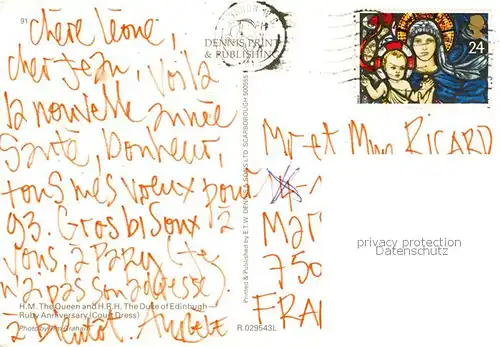 91
chère Léone,
cher Jean, Voilà
la nouvelle année
Santé, bonheur,
tous mes voeux pour
93. Gros bisoux à
vous, à Pazy (je
n'ai pas son adresse).
à bientôt.
H.M. The Queen and H.R.H. The Duke of Edinburgh
Ruby Anniversary (Court Dress)
Photo by Tim Graham
R.029543L
DENNIS PRINT
& PUBLISHIN
Printed & Published by E.T.W. DENNIS & SONS LTD. SCARBOROUGH
24
Mr et Mme RICARD
Mar
750
FRA
privacy protection
oldthing.de